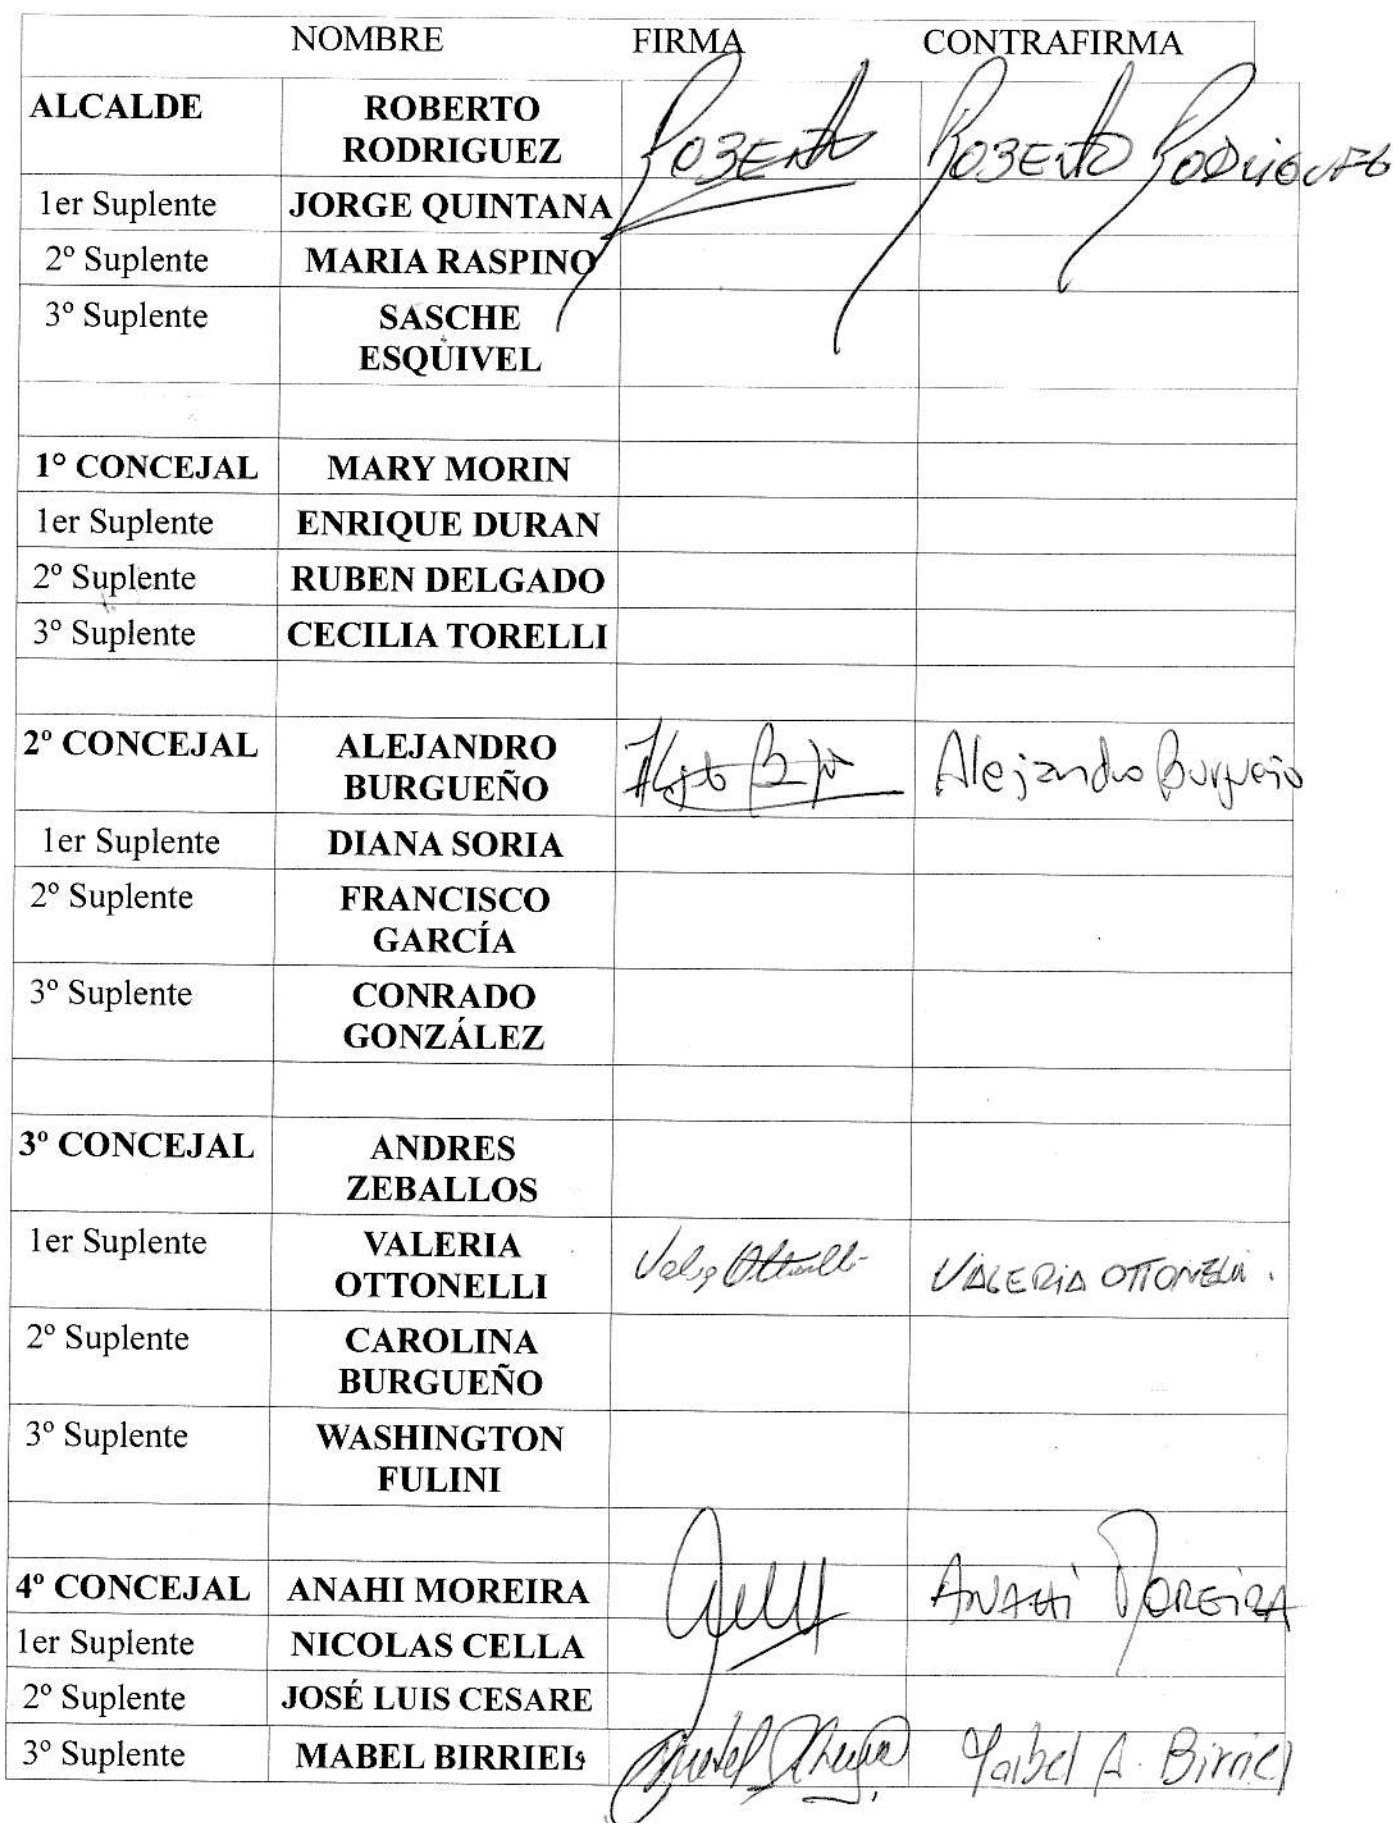 NOMBRE FIRMA CONTRAFIRMA
ALCALDE ROBERTO
RODRIGUEZ ROBERTO ROBERTO RODRIGUEZ
1er Suplente JORGE QUINTANA
2º Suplente MARIA RASPINO
3º Suplente SASCHE
ESQUIVEL
1° CONCEJAL MARY MORIN
1er Suplente ENRIQUE DURAN
2º Suplente RUBEN DELGADO
3º Suplente CECILIA TORELLI
2º CONCEJAL ALEJANDRO
BURGUEÑO Alejandro Burgueño
1er Suplente DIANA SORIA
2º Suplente FRANCISCO
GARCÍA
3º Suplente CONRADO
GONZÁLEZ
3º CONCEJAL ANDRES
ZEBALLOS
1er Suplente VALERIA
OTTONELLI VALERIA OTTONELLI.
2º Suplente CAROLINA
BURGUEÑO
3º Suplente WASHINGTON
FULINI
4º CONCEJAL ANAHI MOREIRA ANAHI MOREIRA
1er Suplente NICOLAS CELLA
2º Suplente JOSÉ LUIS CESARE
3º Suplente MABEL BIRRIEL Mabel A. Birriel